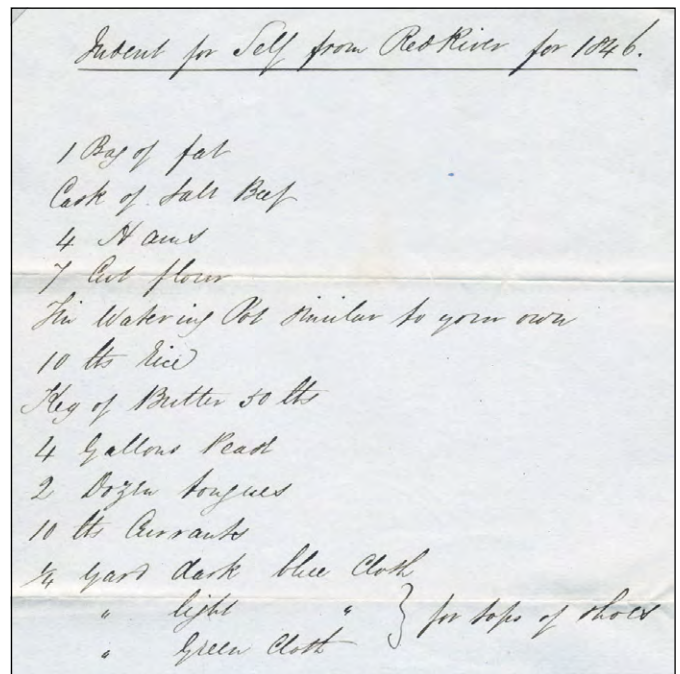 Indent for Self from Red River for 1846.
1 Bag of fat
Cask of Salt Beef
4 Hams
7 Cwt flour
Tin Watering Pot similar to your own
10 lbs Rice
Keg of Butter 50 lbs
4 Gallons Peas
2 Dozen tongues
10 lbs Currants
1/4 yard dark blue Cloth
" light " } for tops of shoes
" Green Cloth